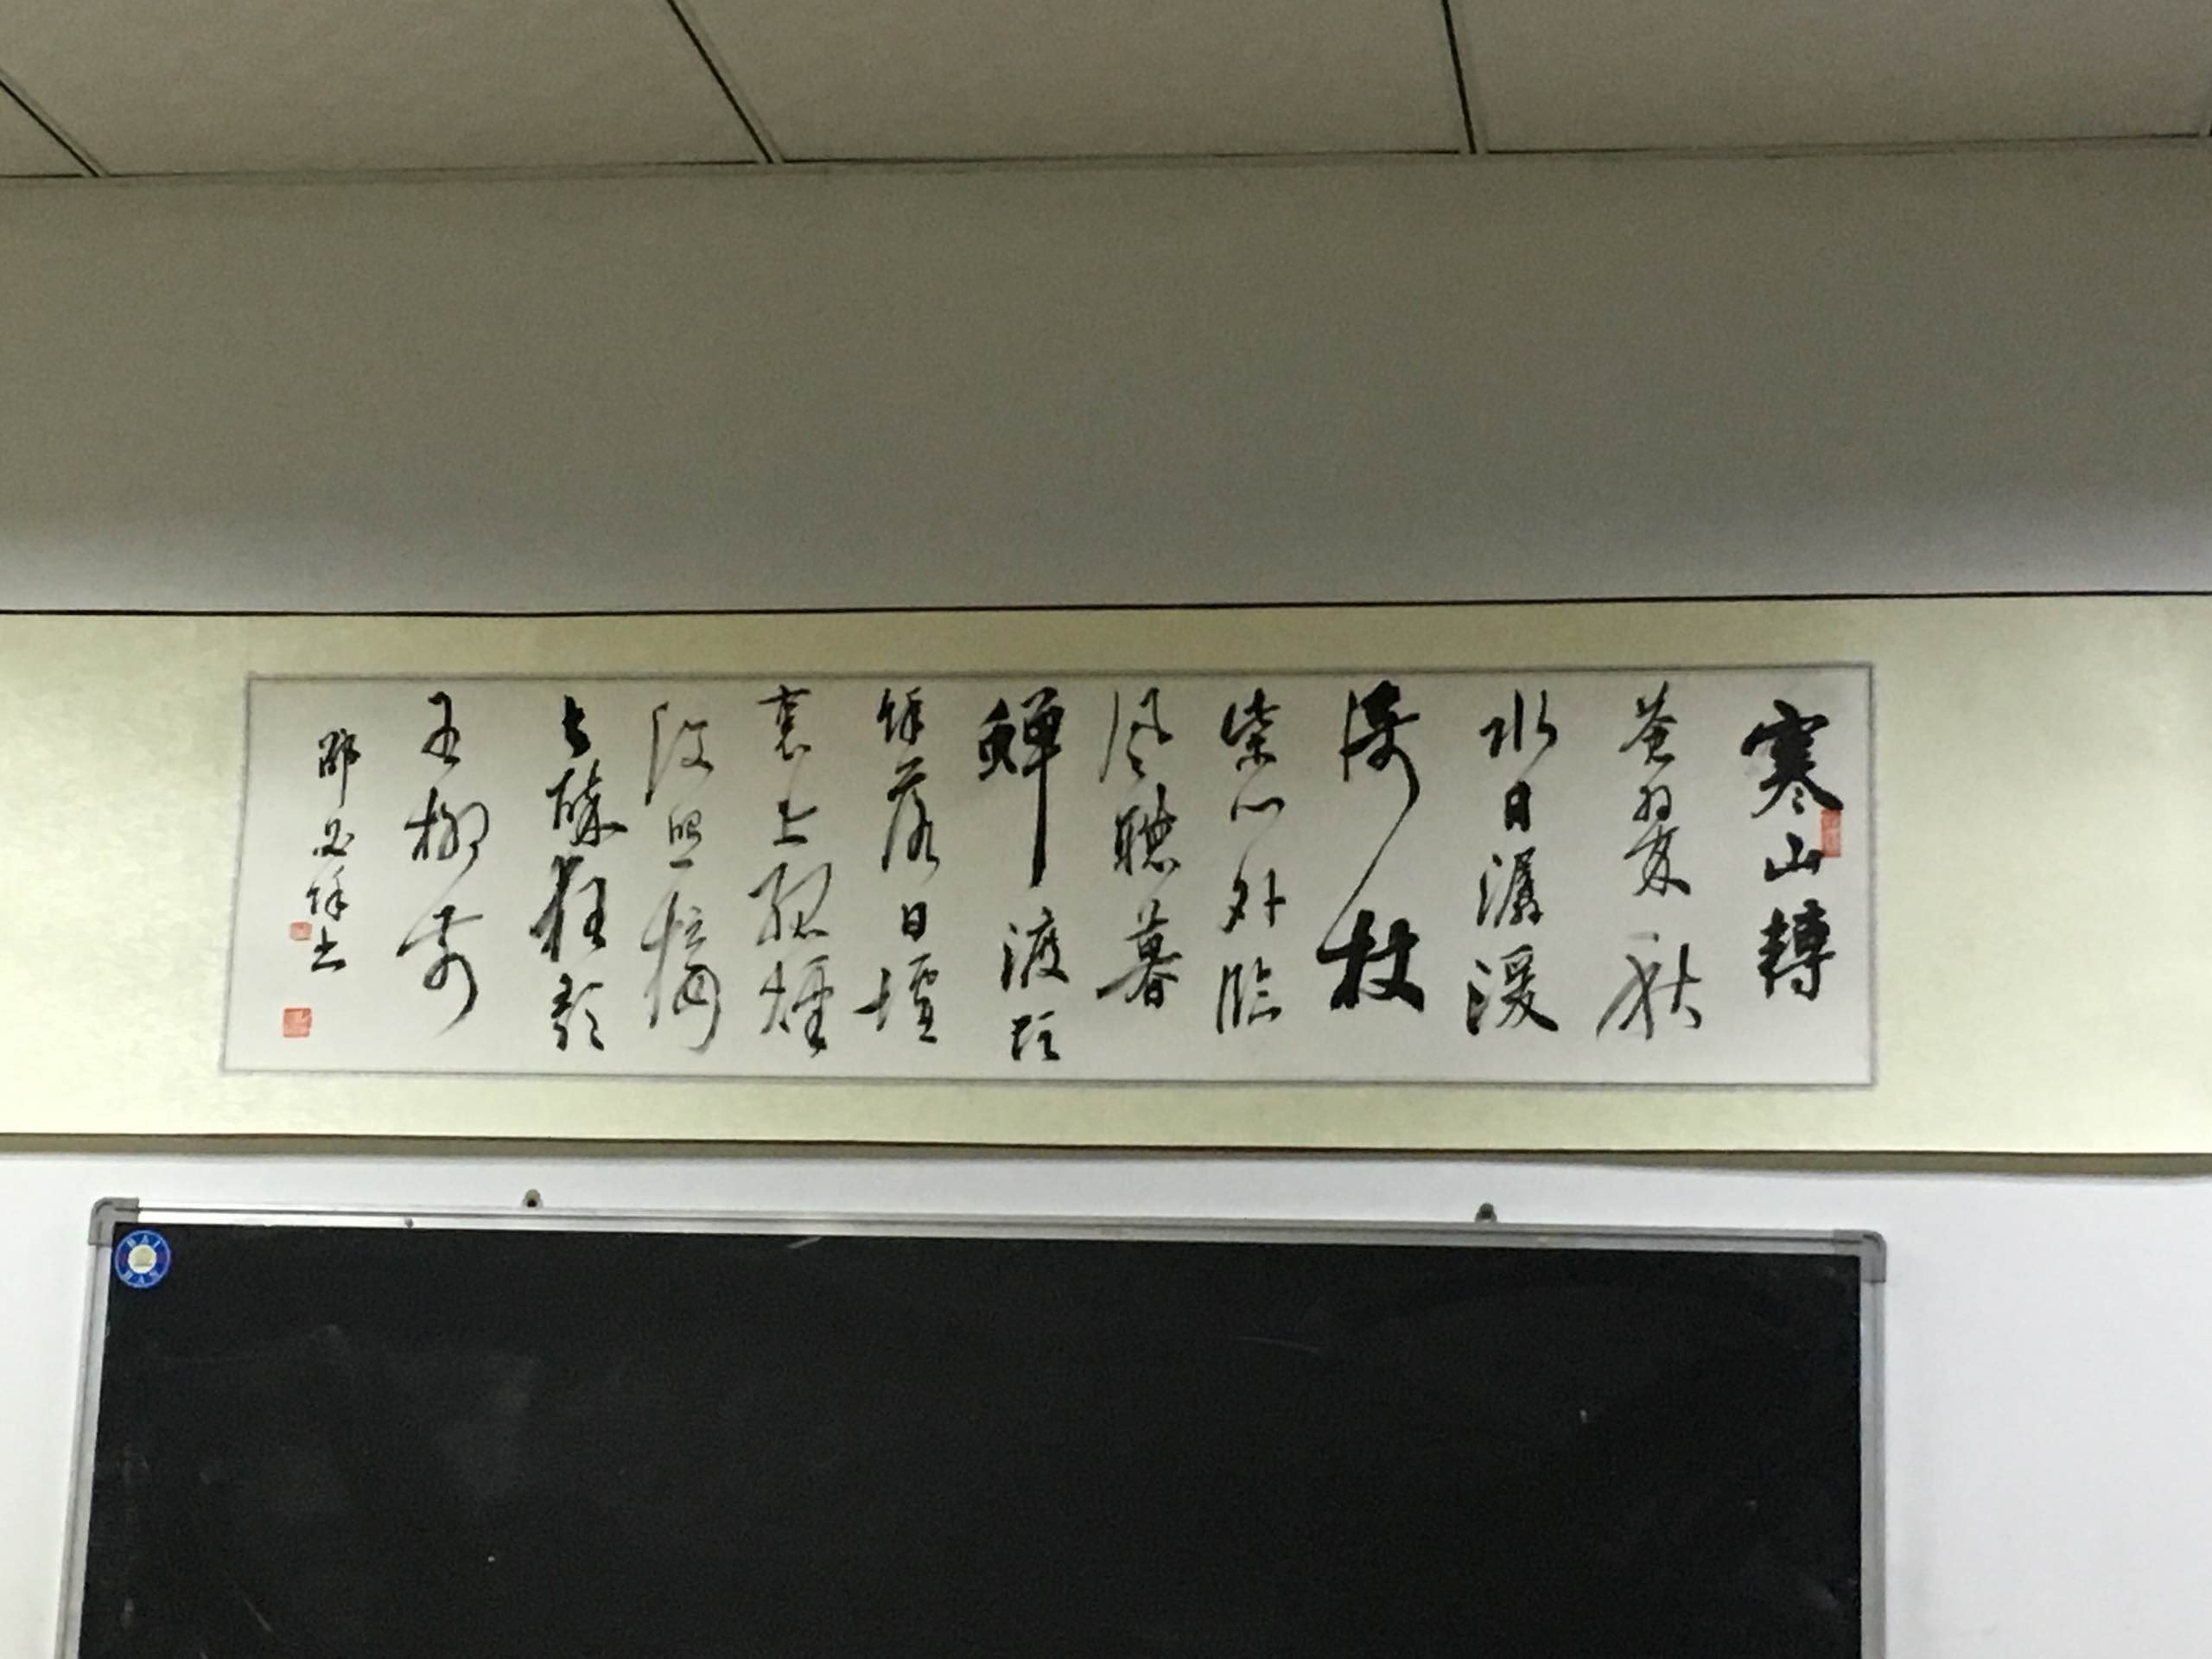 寒山轉
蒼翠秋
水日潺湲
倚杖
柴门外臨
风聽暮
蟬渡頭
餘落日墟
裏上孤煙
復值接
輿醉狂歌
五柳前
邵 書
BAI BAN